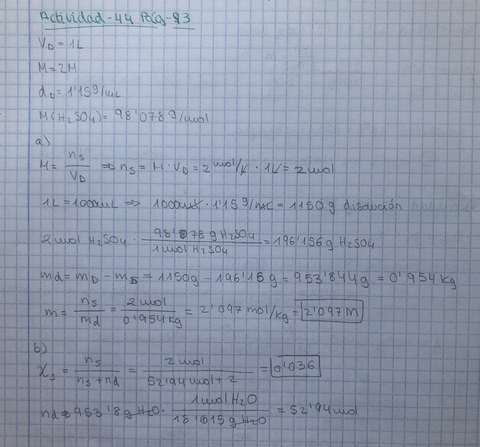 Actividad-44 Pág-93
V_D = 1L
M = 2M
d_D = 1'15 g/mL
M(H₂SO₄) = 98'078 g/mol
a)
M = n_s / V_D ⇒ n_s = M · V_D = 2 mol/L · 1L = 2 mol
1L = 1000mL ⇒ 1000mL · 1'15 g/mL = 1150 g disolución
2 mol H₂SO₄ · 98'078 g H₂SO₄ / 1 mol H₂SO₄ = 196'156 g H₂SO₄
md = m_D - m_s = 1150g - 196'156 g = 953'844g = 0'954 kg
m = n_s / md = 2 mol / 0'954 kg = 2'097 mol/kg = 2'097 m
b)
χ_s = n_s / n_s + nd = 2 mol / 52'94 mol + 2 = 0'036
nd ⇒ 953'8 g H₂O · 1 mol H₂O / 18'015 g H₂O = 52'94 mol